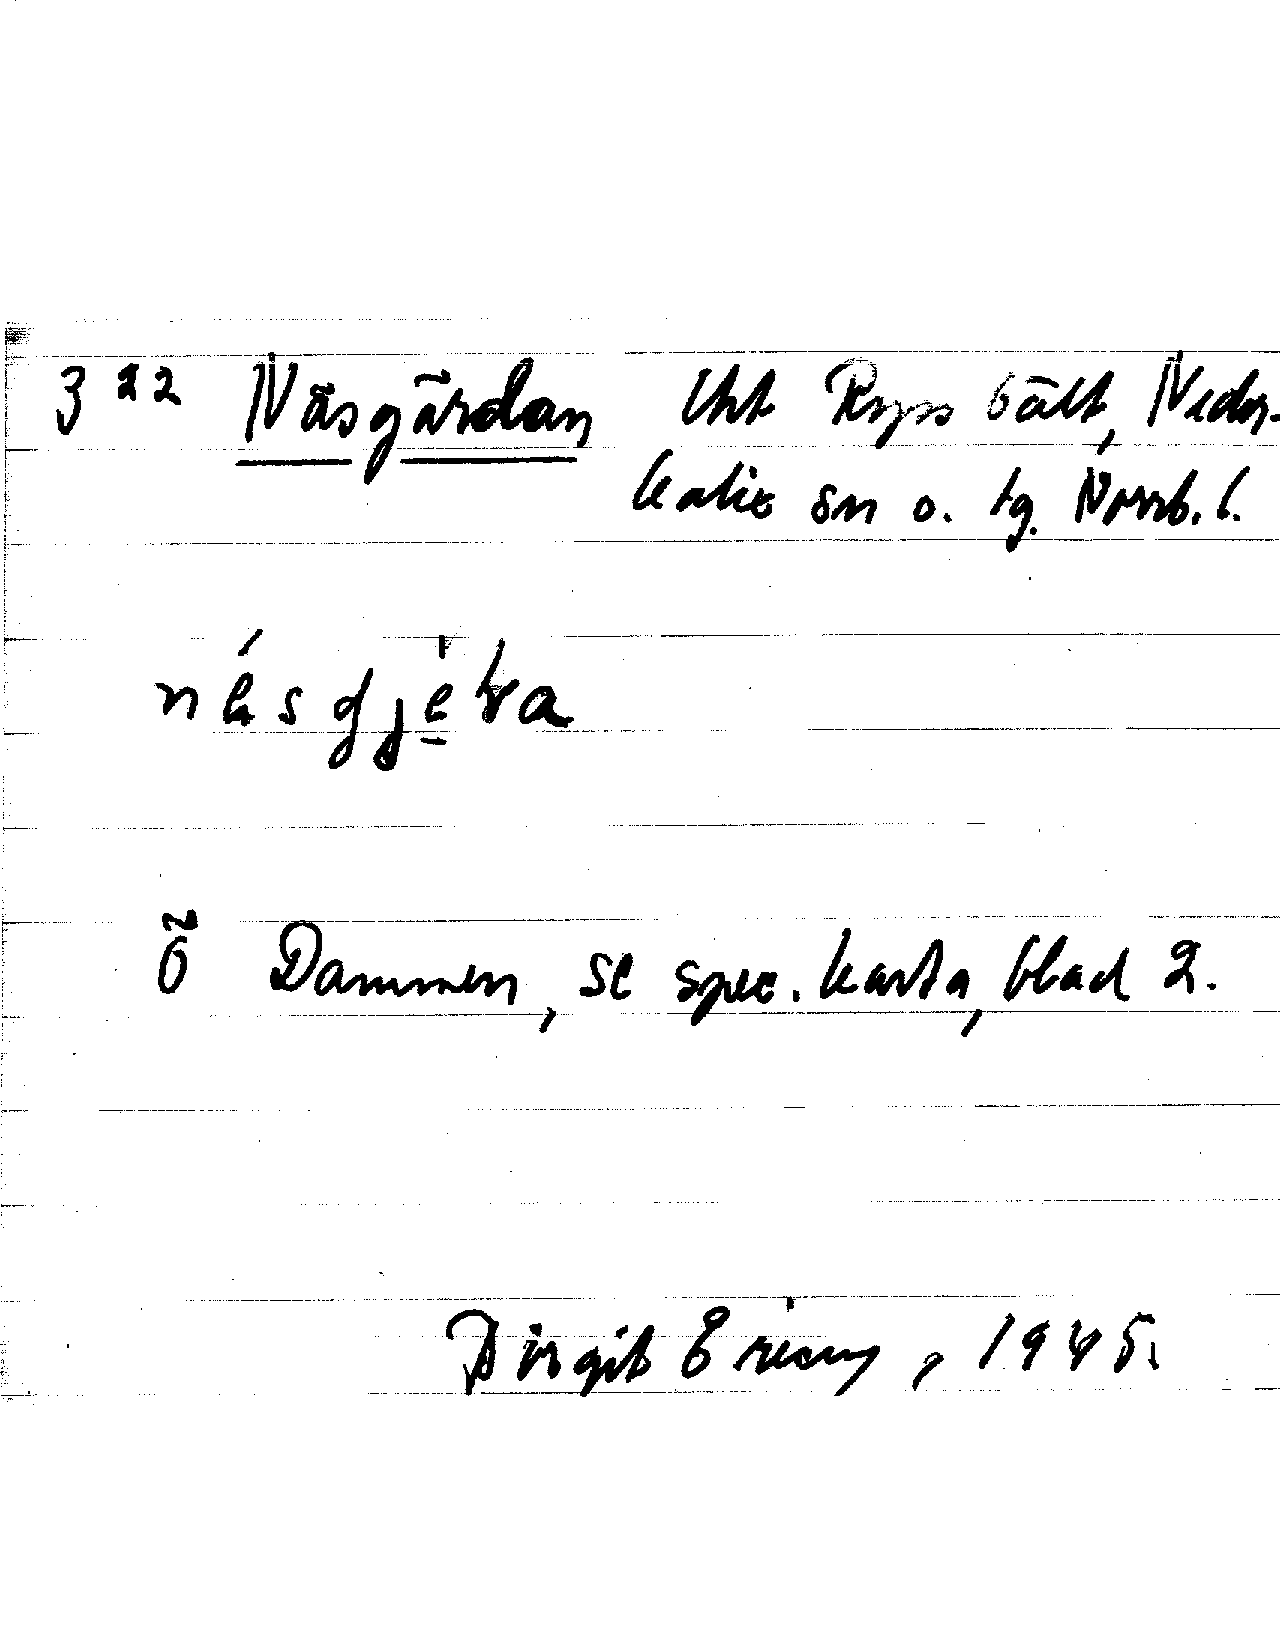 322 Näsgärdan Uht Ryssbält, Neder-
kalix sn o. tg. Norrb. l.
Ö Dammen, se spec. karta, blad 2.
Birgit Ericus, 1945.